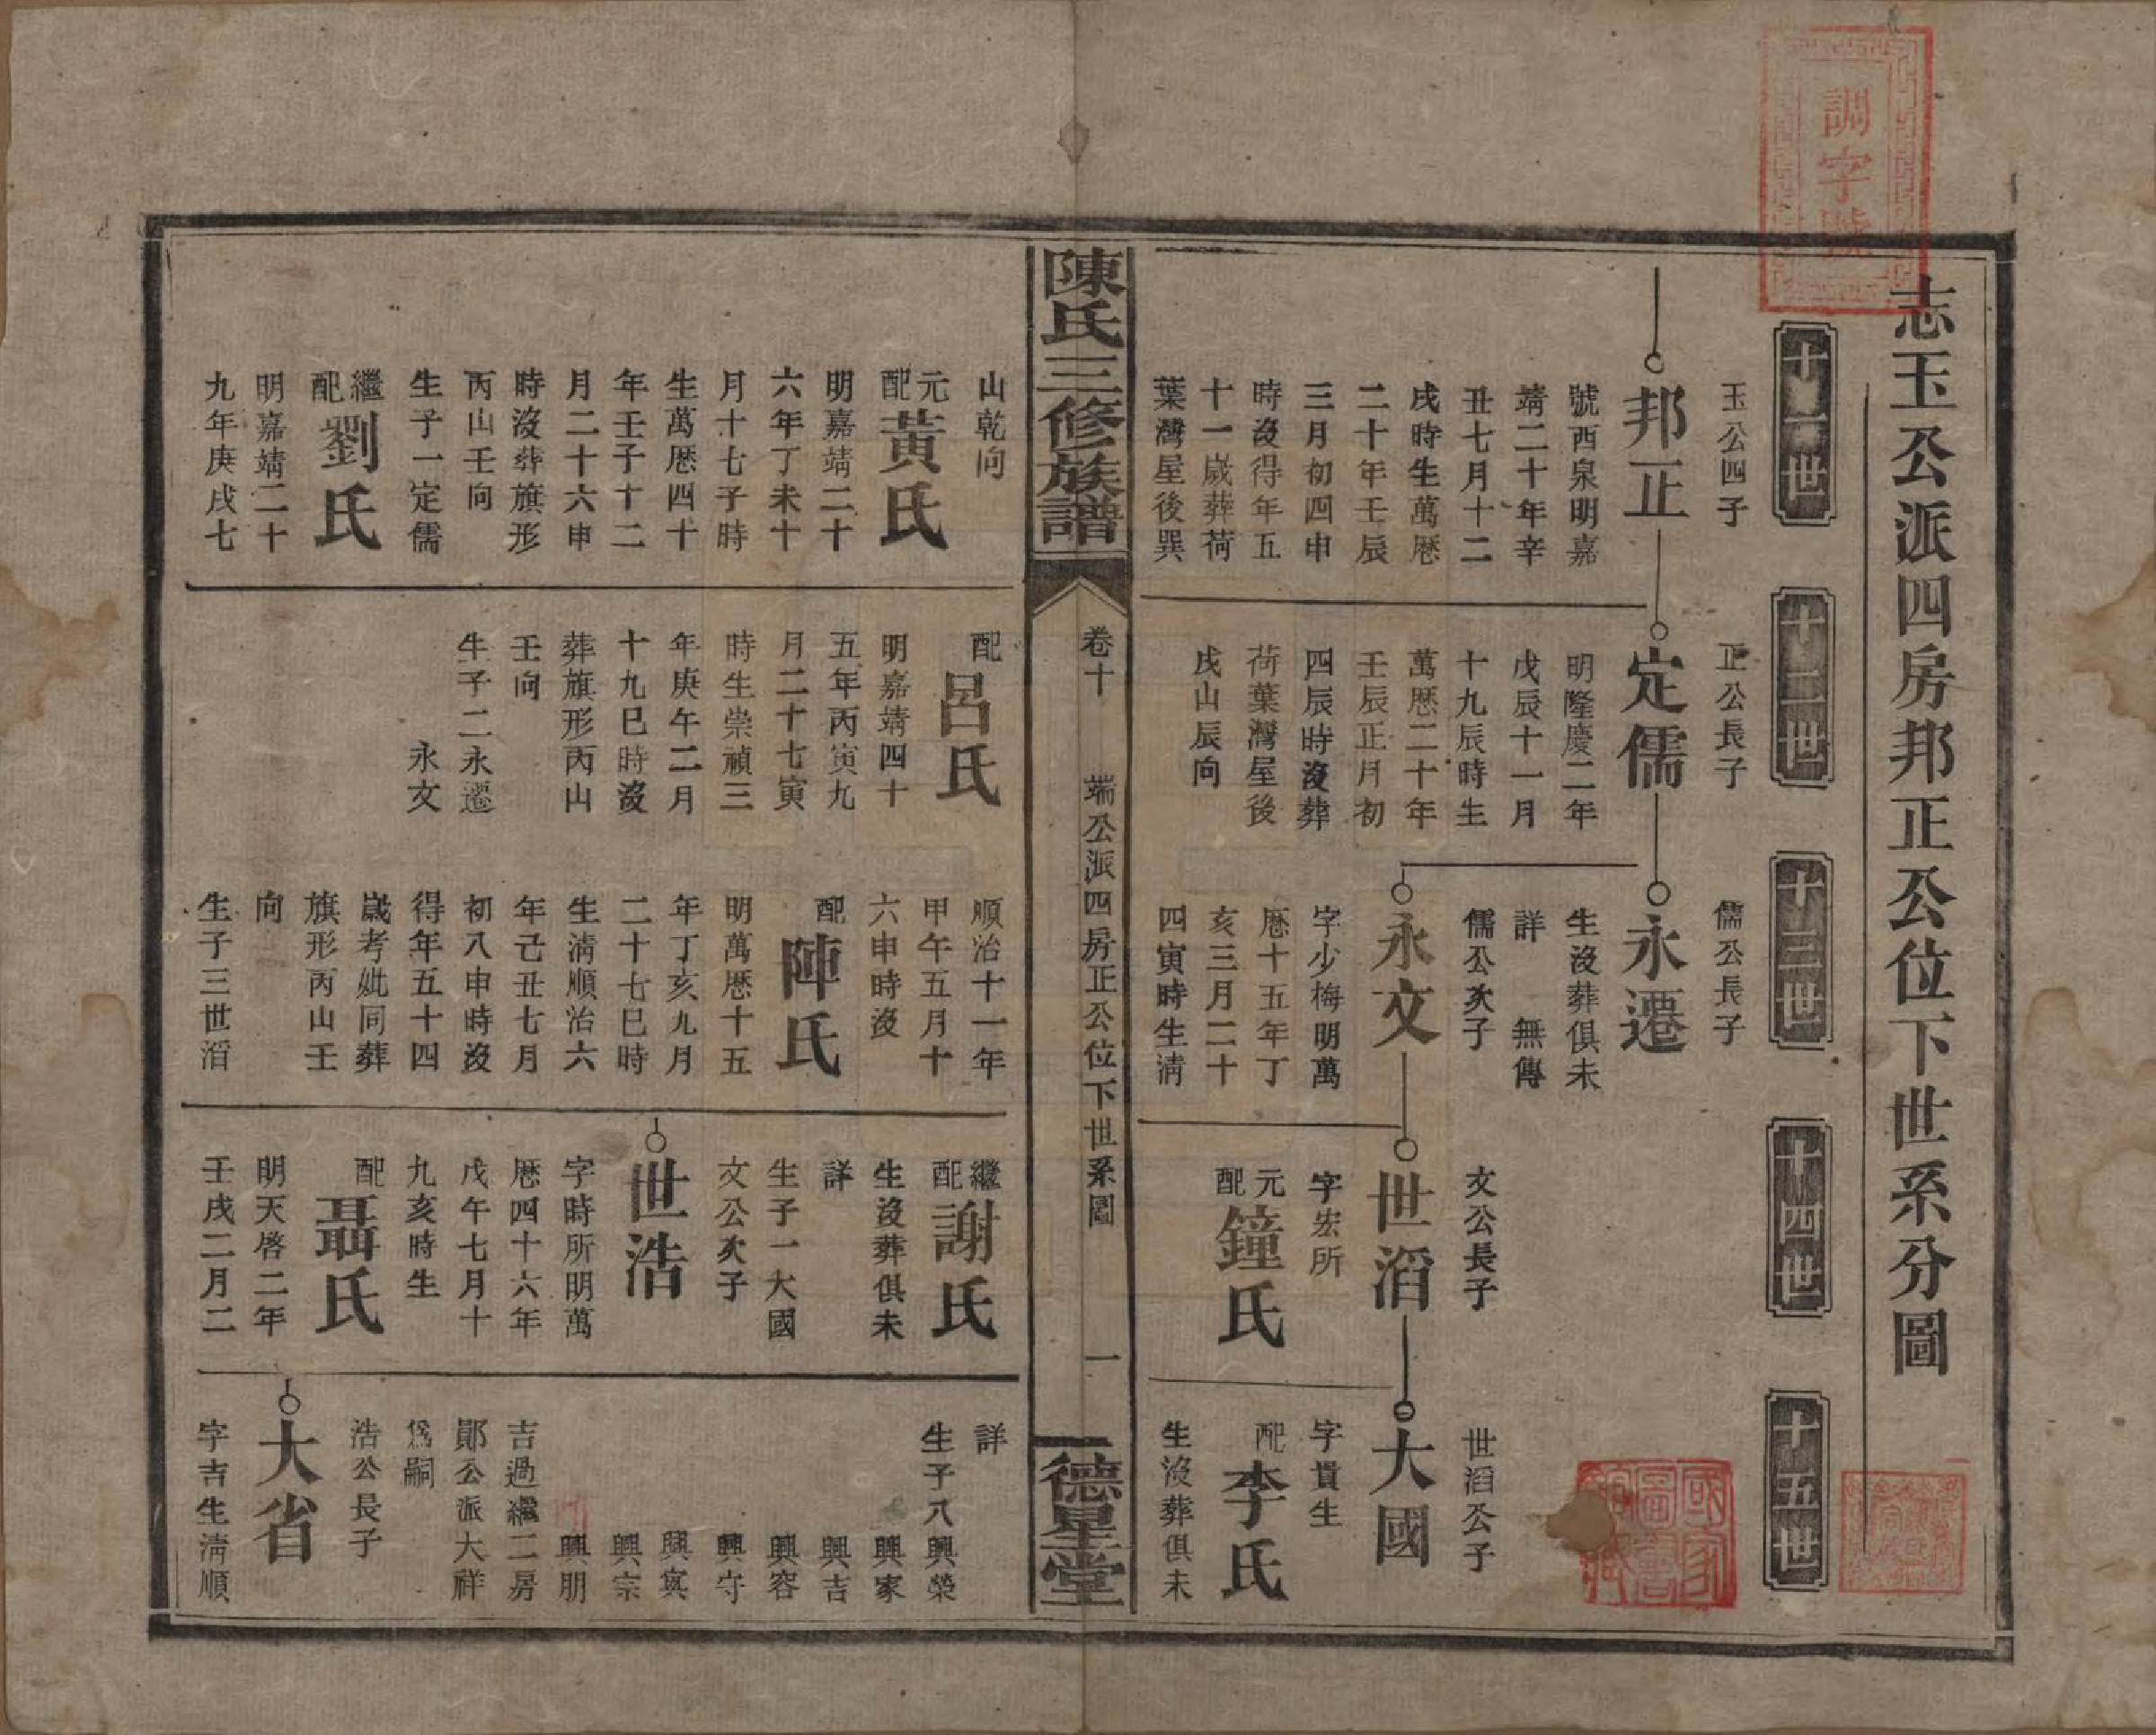 調字號
志玉公派四房邦正公位下世系分圖
十一世
十二世
十三世
十四世
十五世
玉公四子
邦正
號西泉明嘉
靖二十年辛
丑七月十二
戌時生萬歷
二十年壬辰
三月初四申
時沒得年五
十一歲葬荷
葉灣屋後巽
正公長子
定儒
明隆慶二年
戊辰十一月
十九辰時生
萬歷二十年
壬辰正月初
四辰時沒葬
荷葉灣屋後
戌山辰向
儒公長子
永遷
生沒葬俱未
詳 無傳
儒公次子
永文
字少梅明萬
歷十五年丁
亥三月二十
四寅時生清
文公長子
世滔
字宏所
元配鐘氏
世滔公子
大國
字貫生
配李氏
生沒葬俱未
陳氏三修族譜
卷十
端公派四房正公位下世系圖
一
德星堂
山乾向
元配黃氏
明嘉靖二十
六年丁未十
月十七子時
生萬歷四十
年壬子十二
月二十六申
時沒葬旗形
丙山壬向
生子一定儒
繼配劉氏
明嘉靖二十
九年庚戌七
配呂氏
明嘉靖四十
五年丙寅九
月二十七寅
時生崇禎三
年庚午二月
十九巳時沒
葬旗形丙山
壬向
生子二永遷
永文
順治十一年
甲午五月十
六申時沒
配陣氏
明萬歷十五
年丁亥九月
二十七巳時
生淸順治六
年己丑七月
初八申時沒
得年五十四
歲考妣同葬
旗形丙山壬
向
生子三世滔
繼配謝氏
生沒葬俱未
詳
生子一大國
文公次子
世浩
字時所明萬
歷四十六年
戊午七月十
九亥時生
配聶氏
明天啓二年
壬戌二月二
詳
生子八興榮
興家
興吉
興容
興守
興寅
興宗
興朋
吉過繼二房
鄖公派大祥
爲嗣
浩公長子
大省
字吉生淸順